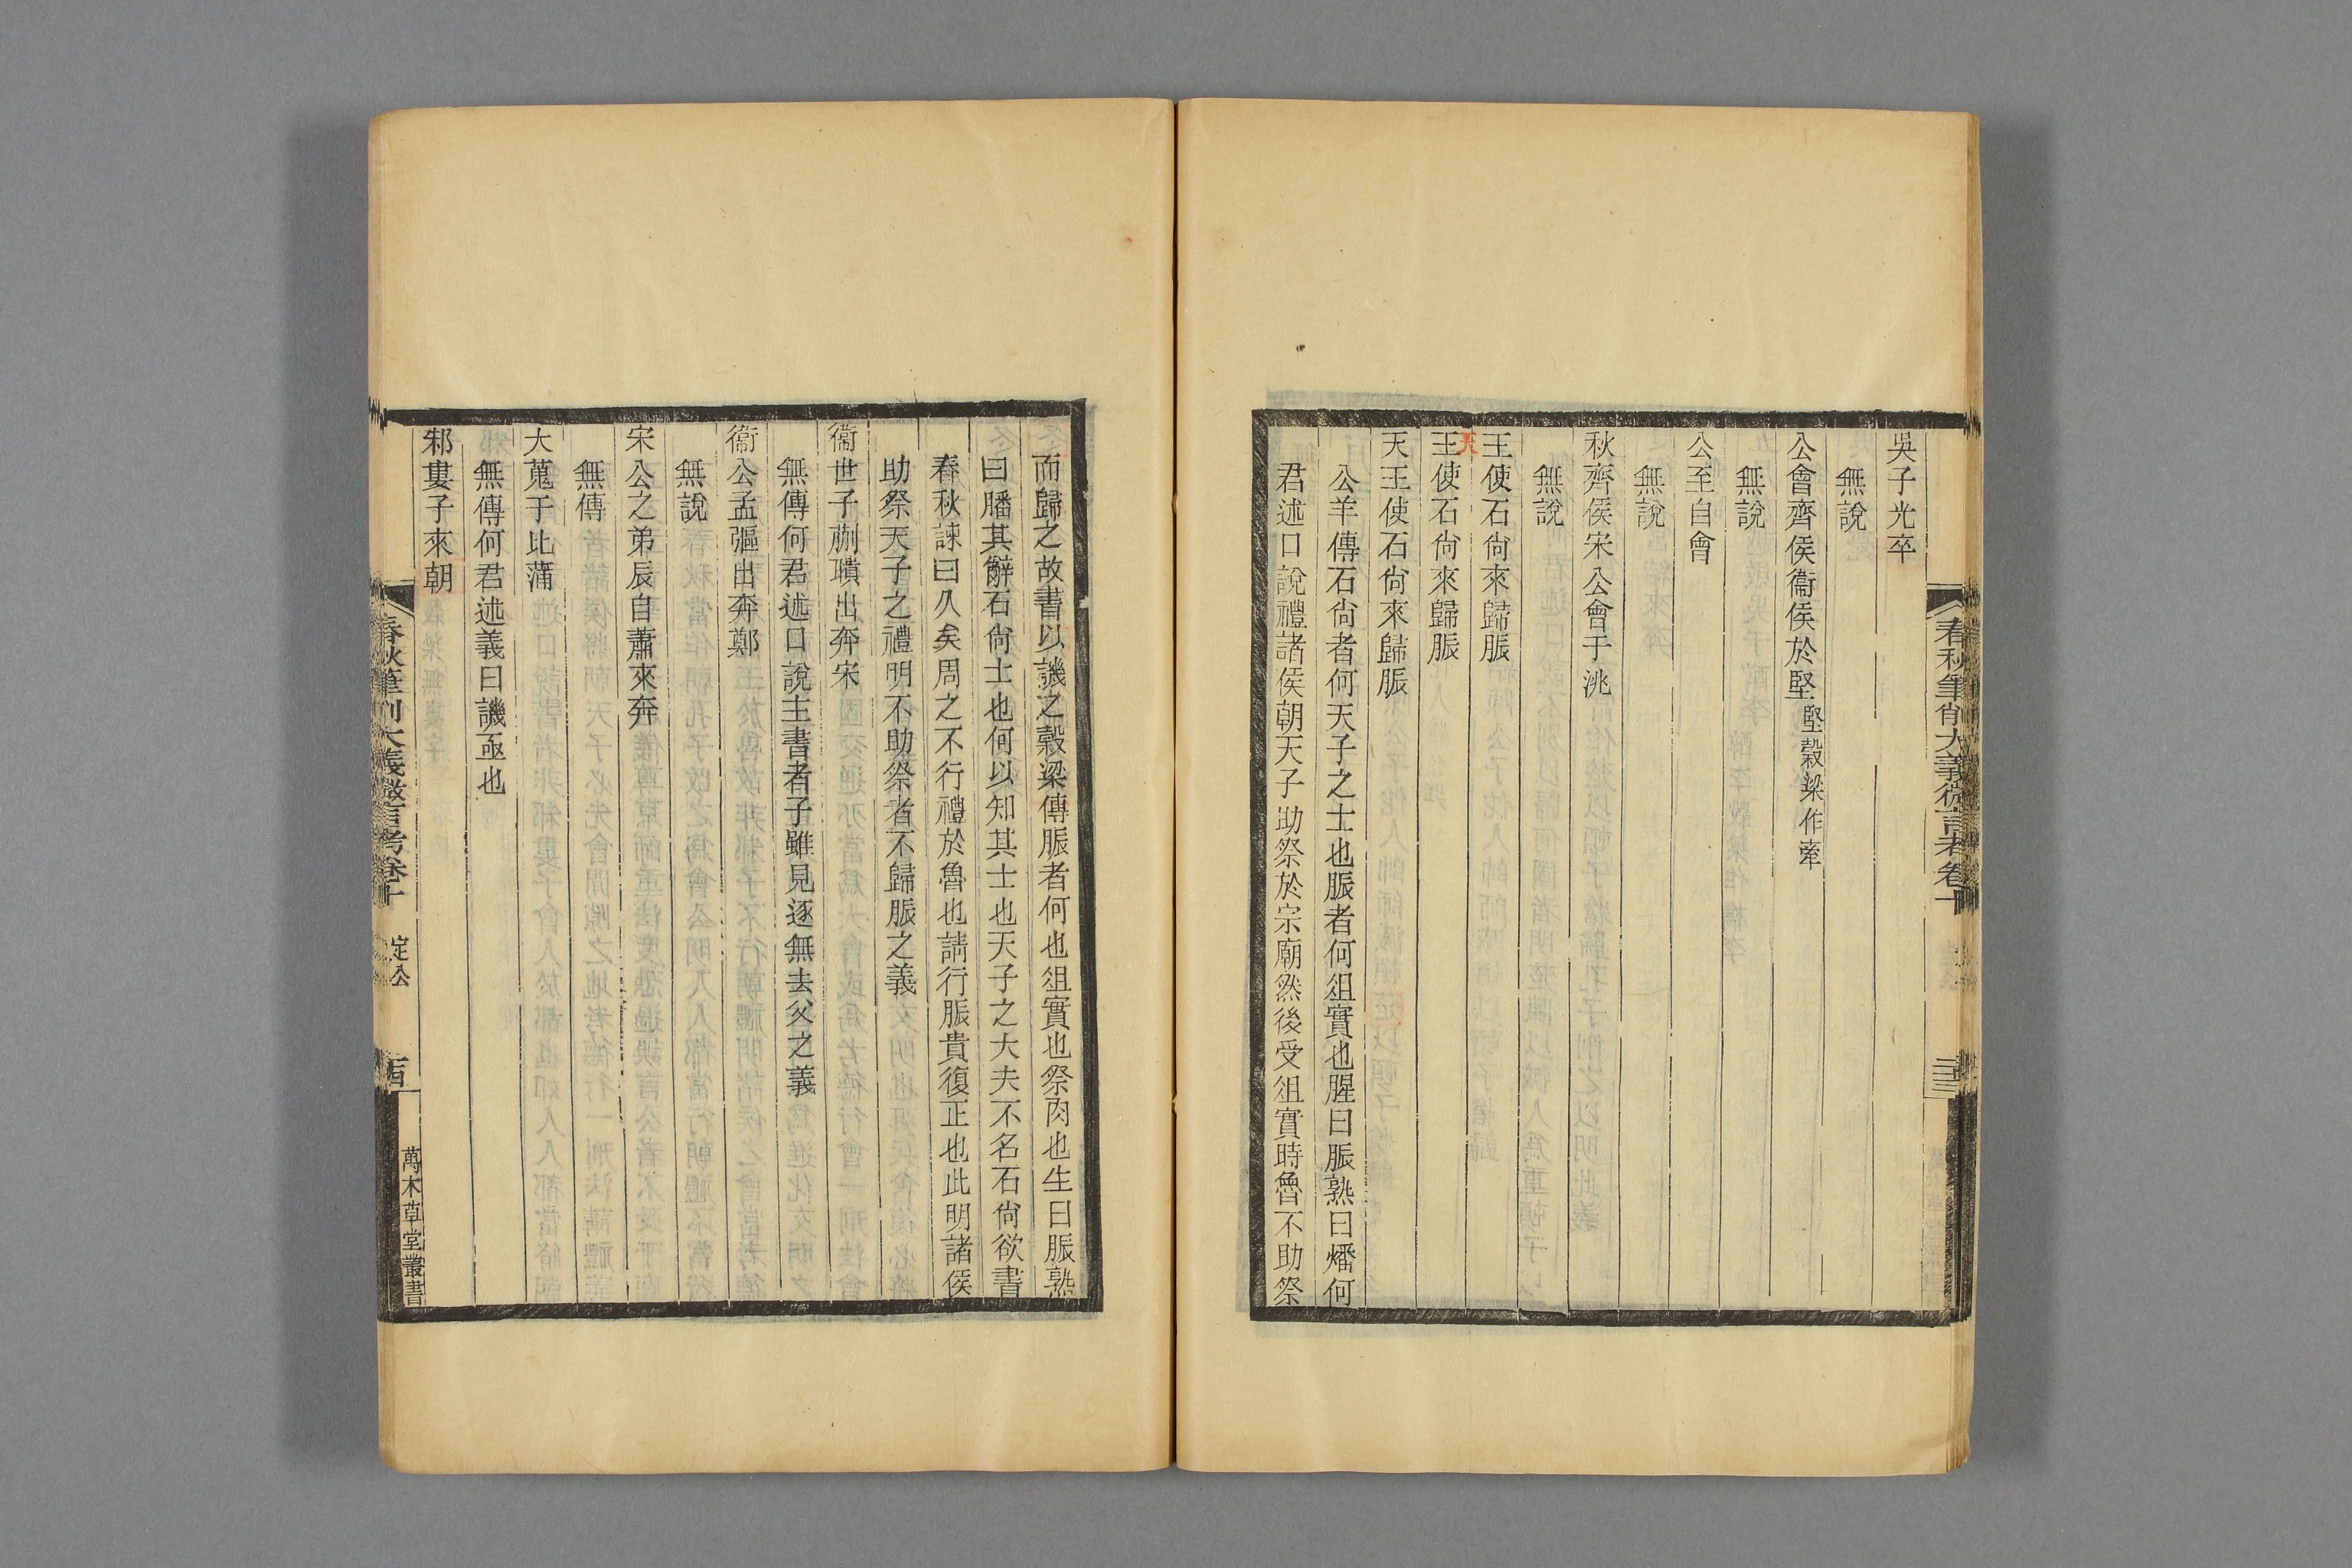 春秋筆削大義微言考卷十
吳子光卒
無說
公會齊侯衞侯於堅堅穀梁作牽
無說
公至自會
無說
秋齊侯宋公會于洮
無說
王使石尙來歸脤
天
王使石尙來歸脤
天王使石尙來歸脤
公羊傳石尙者何天子之士也脤者何俎實也腥曰脤熟曰燔何
君述口說禮諸侯朝天子助祭於宗廟然後受俎實時魯不助祭
而歸之故書以譏之穀梁傳脤者何也俎實也祭肉也生曰脤熟
曰膰其辭石尙士也何以知其士也天子之大夫不名石尙欲書
春秋諫曰久矣周之不行禮於魯也請行脤貴復正也此明諸侯
助祭天子之禮明不助祭者不歸脤之義
衞世子蒯聵出奔宋
無傳何君述口說主書者子雖見逐無去父之義
衞公孟彄出奔鄭
無說
宋公之弟辰自蕭來奔
無傳
大蒐于比蒲
無傳何君述義曰譏亟也
邾婁子來朝
春秋筆削大義微言考卷十
定公
萬木草堂叢書